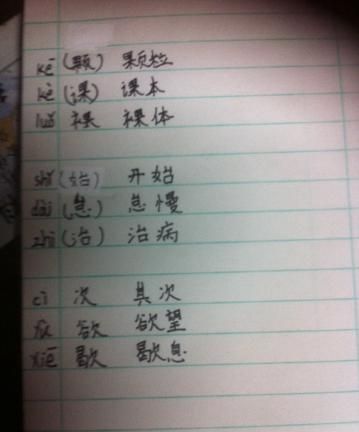 kē (颗) 颗粒
kè (课) 课本
luǒ 裸 裸体
shǐ (始) 开始
dài (怠) 怠慢
zhì (治) 治病
cì 次 其次
欲 欲望
xiē 歇 歇息